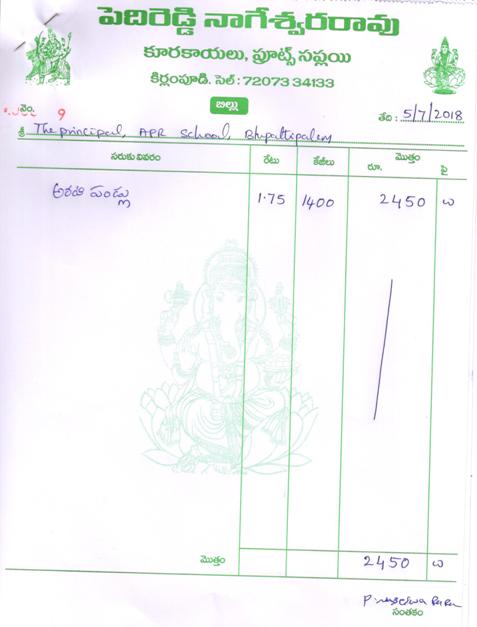 పెదిరెడ్డి నాగేశ్వరరావు
కూరకాయలు, ఫ్రూట్స్ సప్లయి
కిర్లంపూడి. సెల్ : 72073 34133
నెం. 9 బిల్లు తేది : 5/7/2018
శ్రీ The principal, APR School, Bhupatipalem
సరుకు వివరం రేటు కేజీలు మొత్తం
రూ. పై
అరటి పండ్లు 1.75 1400 2450 ॥
మొత్తం 2450 ॥
సంతకం